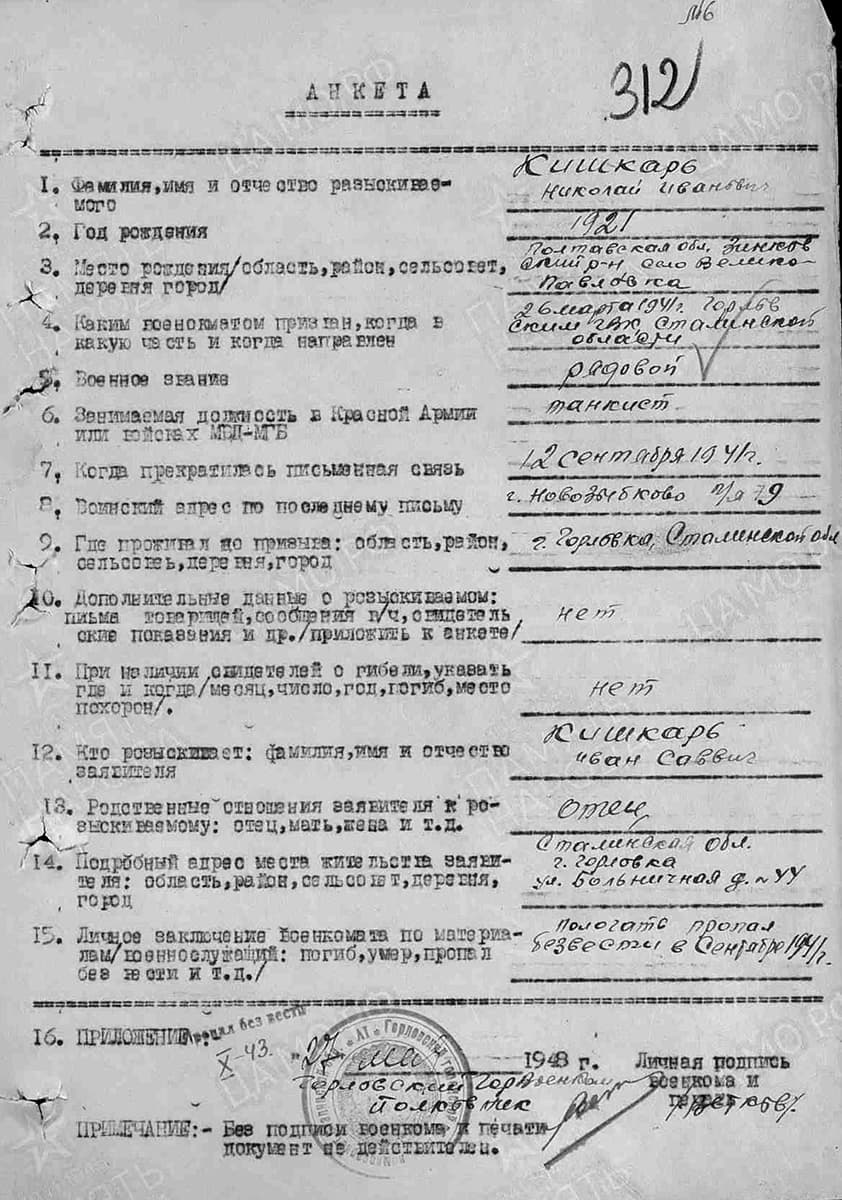 №6
312
АНКЕТА
1. Фамилия,имя и отчество разыскивае-
мого
Кишкарь
Николай Иванович
2. Год рождения
1921
3. Место рождения/область,район,сельсовет,
деревня город/
Полтавская обл. Зинков
ский р-н село Велико-
Павловка
4. Каким военкматом призван,когда в
какую часть и когда направлен
26 марта 1941г. Горлов
ским ГВК, Сталинской
области
5. Военное звание
рядовой
6. Занимаемая должность в Красной Армии
или войсках МВД-МГБ
танкист
7. Когда прекратилась письменная связь
12 сентября 1941г.
8. Воинский адрес по последнему письму
г. Новозыбково п/я 79
9. Где проживал до призыва: область,район,
сельсовет,деревня,город
г. Горловка, Сталинской обл
10. Дополнительные данные о розыскиваемом:
письма товарищей,сообщения в/ч,свидетель
ские показания и др./приложить к анкете/
нет
11. При наличии свидетелей о гибели,указать
где и когда/месяц,число,год,погиб,место
похорон/.
нет
12. Кто розыскивает: фамилия,имя и отчество
заявителя
Кишкарь
Иван Саввич
13. Родственные отношения заявителя к ро-
зыскиваемому: отец,мать,жена и т.д.
Отец
14. Подробный адрес места жительства заяви-
теля: область,район,сельсовет,деревня,
город
Сталинская обл.
г. Горловка
ул. Больничная д. № 44
15. Личное заключение Военкомата по материа-
лам/военнослужащий: погиб,умер,пропал
без вести и т.д./
Пологать пропал
безвести в Сентябре 1941г.
16. ПРИЛОЖЕНИЕ:
Пропал без вести
X-43.
"27" мая 1948 г. Личная подпись
военкома и
печать
Горловский Горвоенком
полковник
ПРИМЕЧАНИЕ:- Без подписи военкома и печати
документ не действителен.